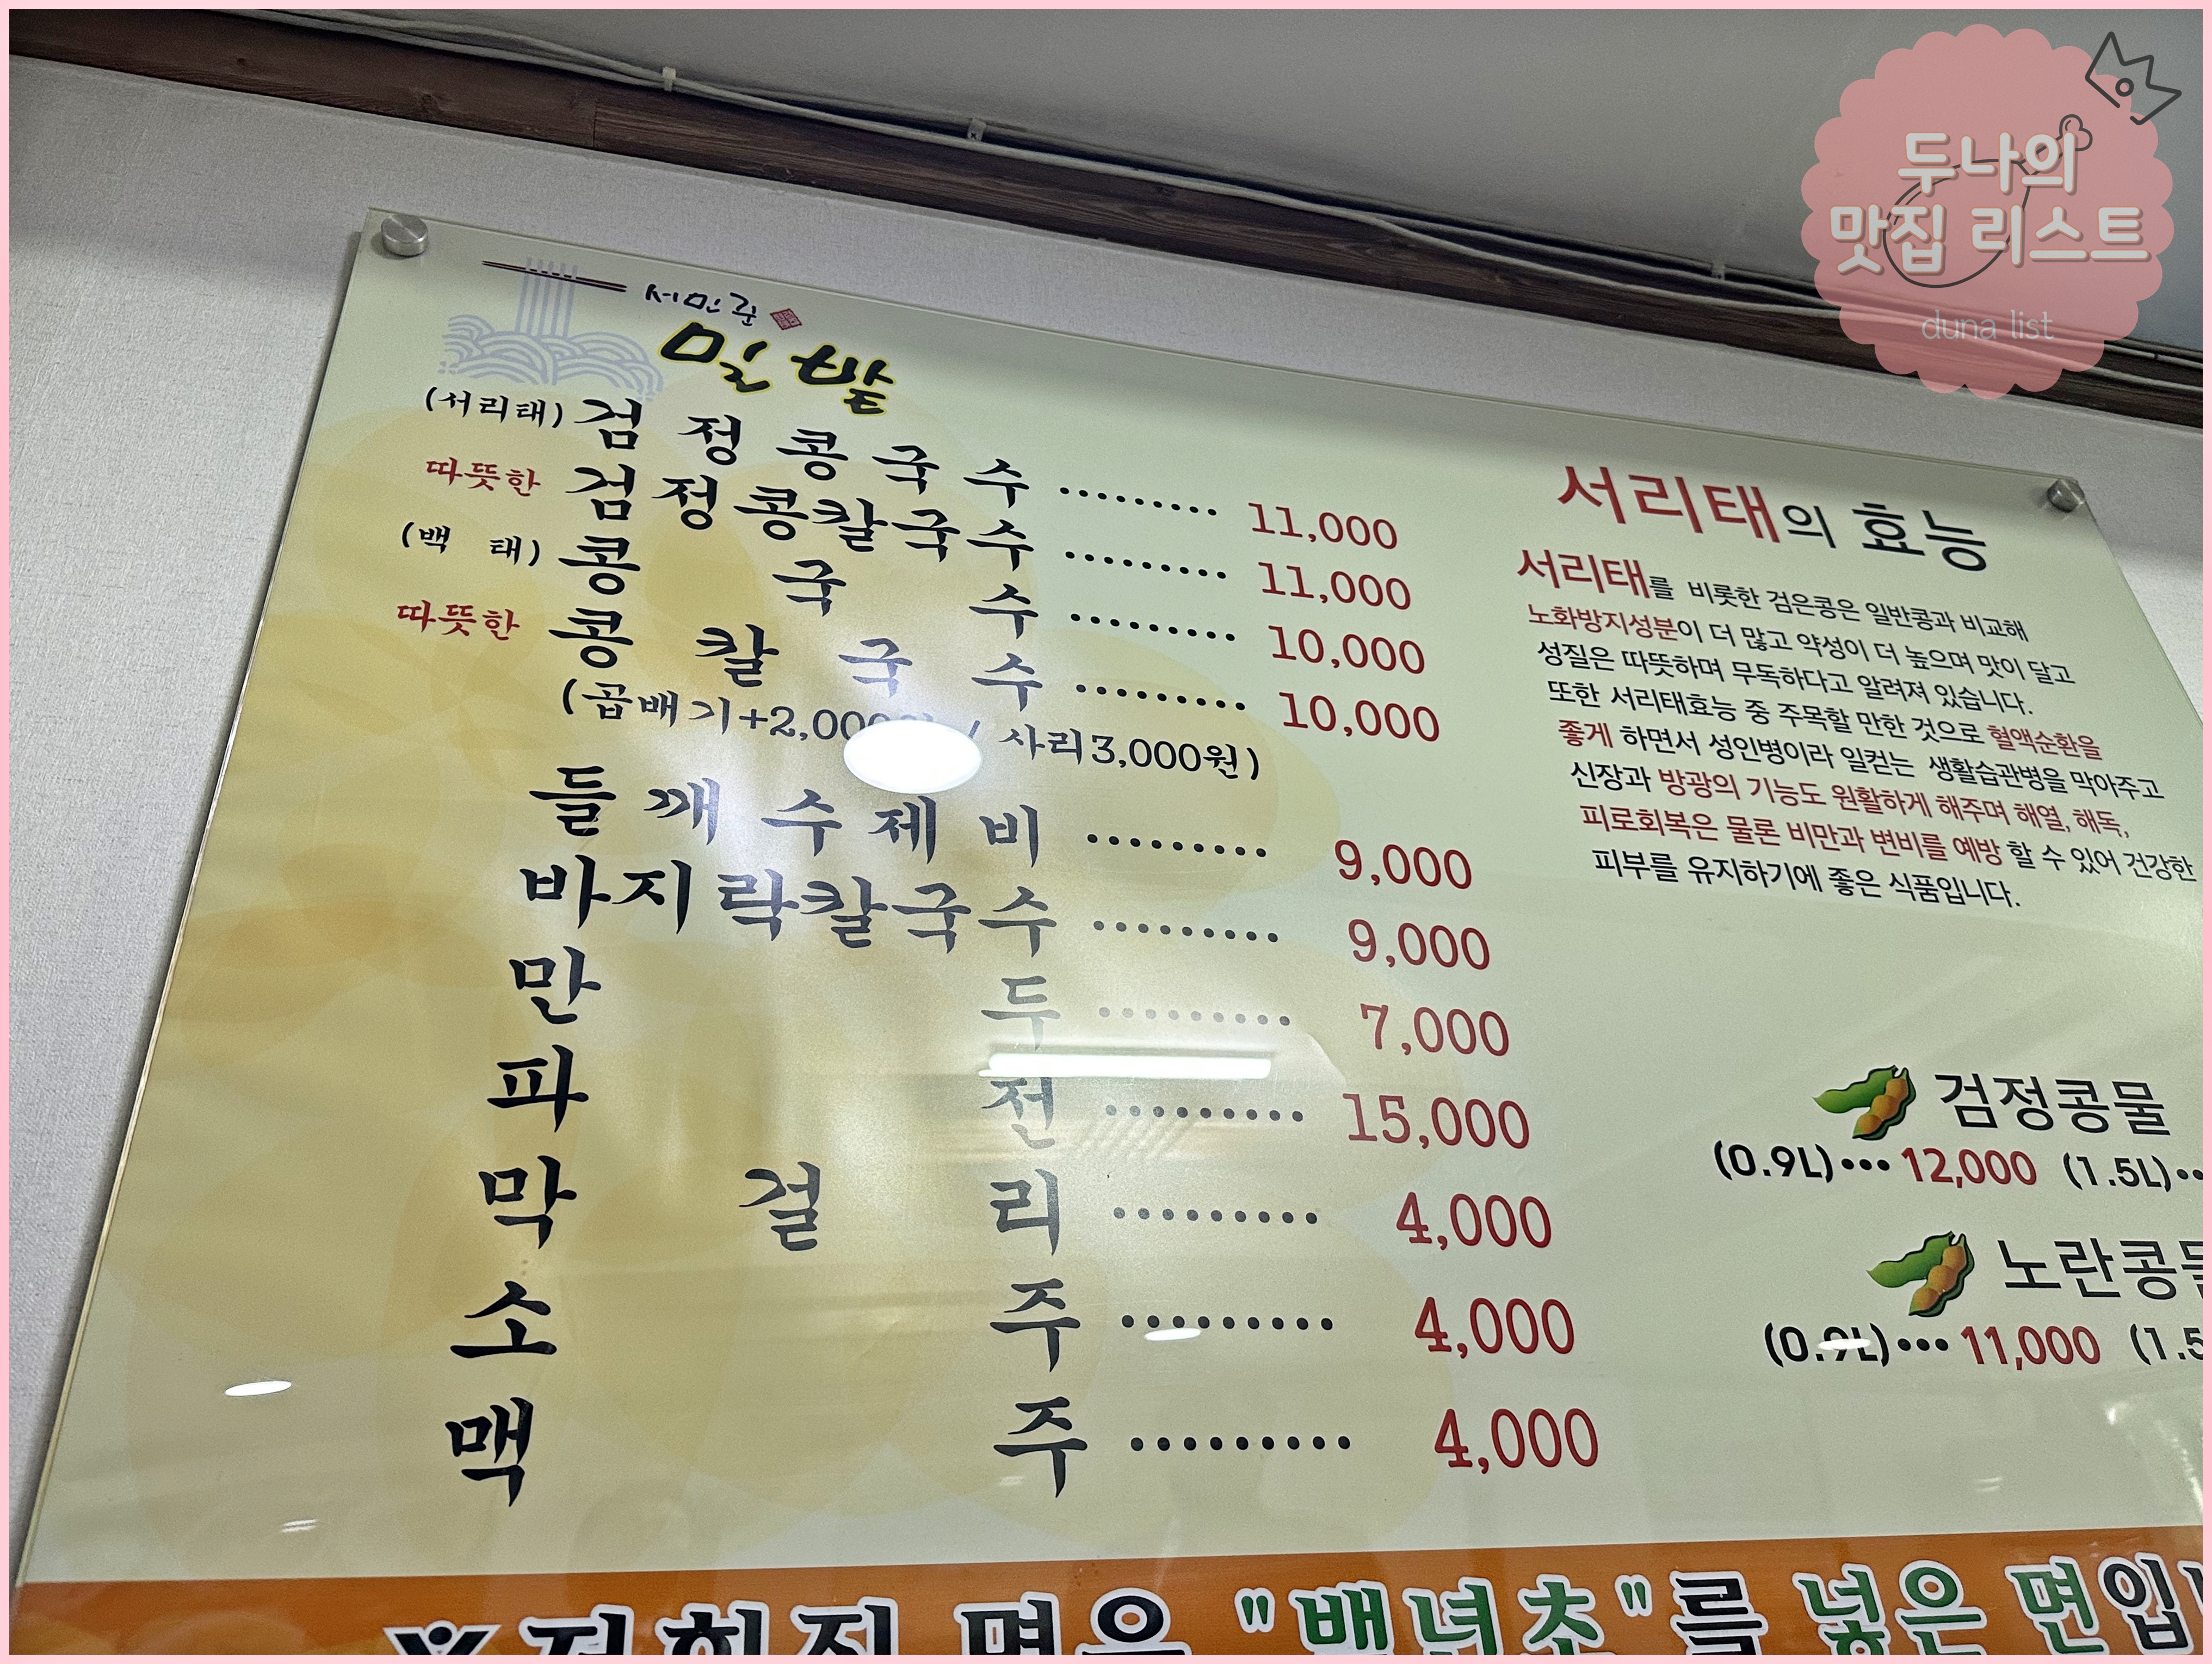 두나의
맛집 리스트
duna list
서민준
밀밭
(서리태) 검정콩국수 ········· 11,000
따뜻한 검정콩칼국수 ········· 11,000
(백 태) 콩 국 수 ········· 10,000
따뜻한 콩 칼 국 수 ········· 10,000
(곱배기+2,000원 / 사리3,000원)
들깨수제비 ········· 9,000
바지락칼국수 ········· 9,000
만 두 ········· 7,000
파 전 ········· 15,000
막 걸 리 ········· 4,000
소 주 ········· 4,000
맥 주 ········· 4,000
서리태의 효능
서리태를 비롯한 검은콩은 일반콩과 비교해
노화방지성분이 더 많고 약성이 더 높으며 맛이 달고
성질은 따뜻하며 무독하다고 알려져 있습니다.
또한 서리태효능 중 주목할 만한 것으로 혈액순환을
좋게 하면서 성인병이라 일컫는 생활습관병을 막아주고
신장과 방광의 기능도 원활하게 해주며 해열, 해독,
피로회복은 물론 비만과 변비를 예방 할 수 있어 건강한
피부를 유지하기에 좋은 식품입니다.
검정콩물
(0.9L)···12,000 (1.5L)··
노란콩물
(0.9L)···11,000 (1.5
※저희집 면은 "백년초"를 넣은 면입